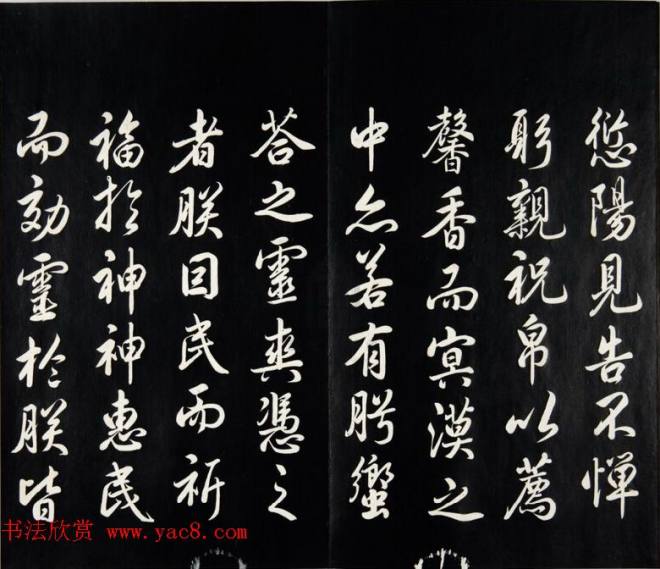 愆陽見告不惮
躬親祝帛以薦
馨香而冥漠之
中亦若有肸蠁
荅之靈爽憑之
者朕因民而祈
福於神神惠民
而効靈於朕皆
书法欣赏 www.yac8.com